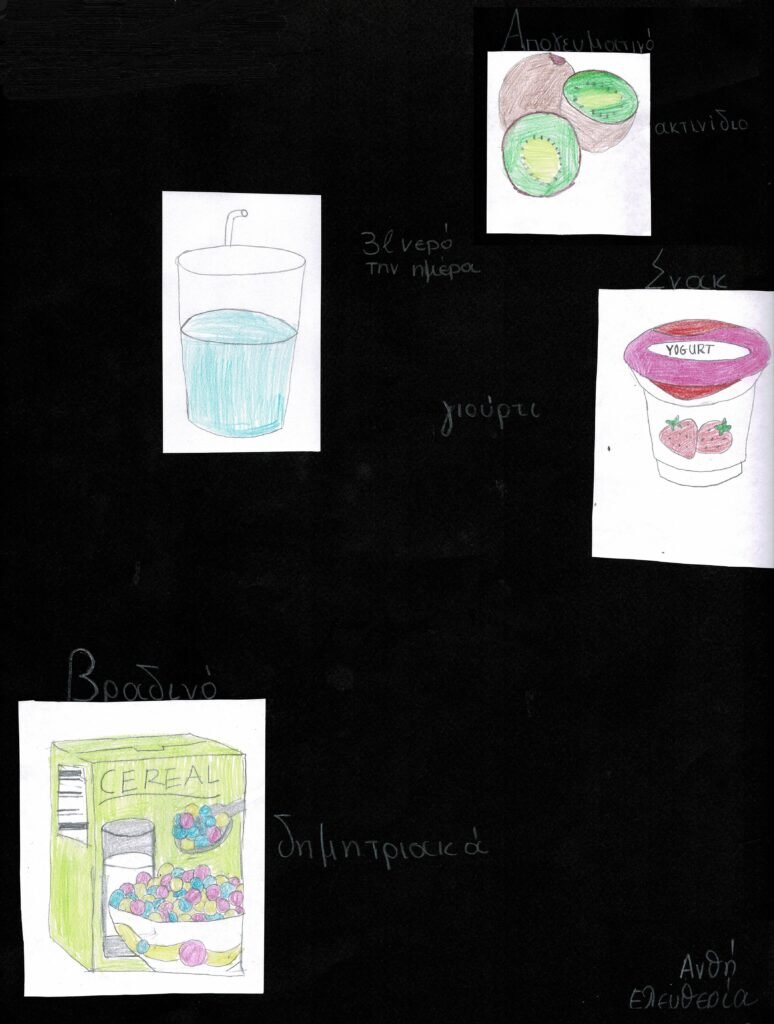 Απογευματινό
ακτινίδιο
3l νερό
την ημέρα
Σνακ
YOGURT
γιούρτι
Βραδινό
CEREAL
δημητριακά
Ανθή
ελευθερία